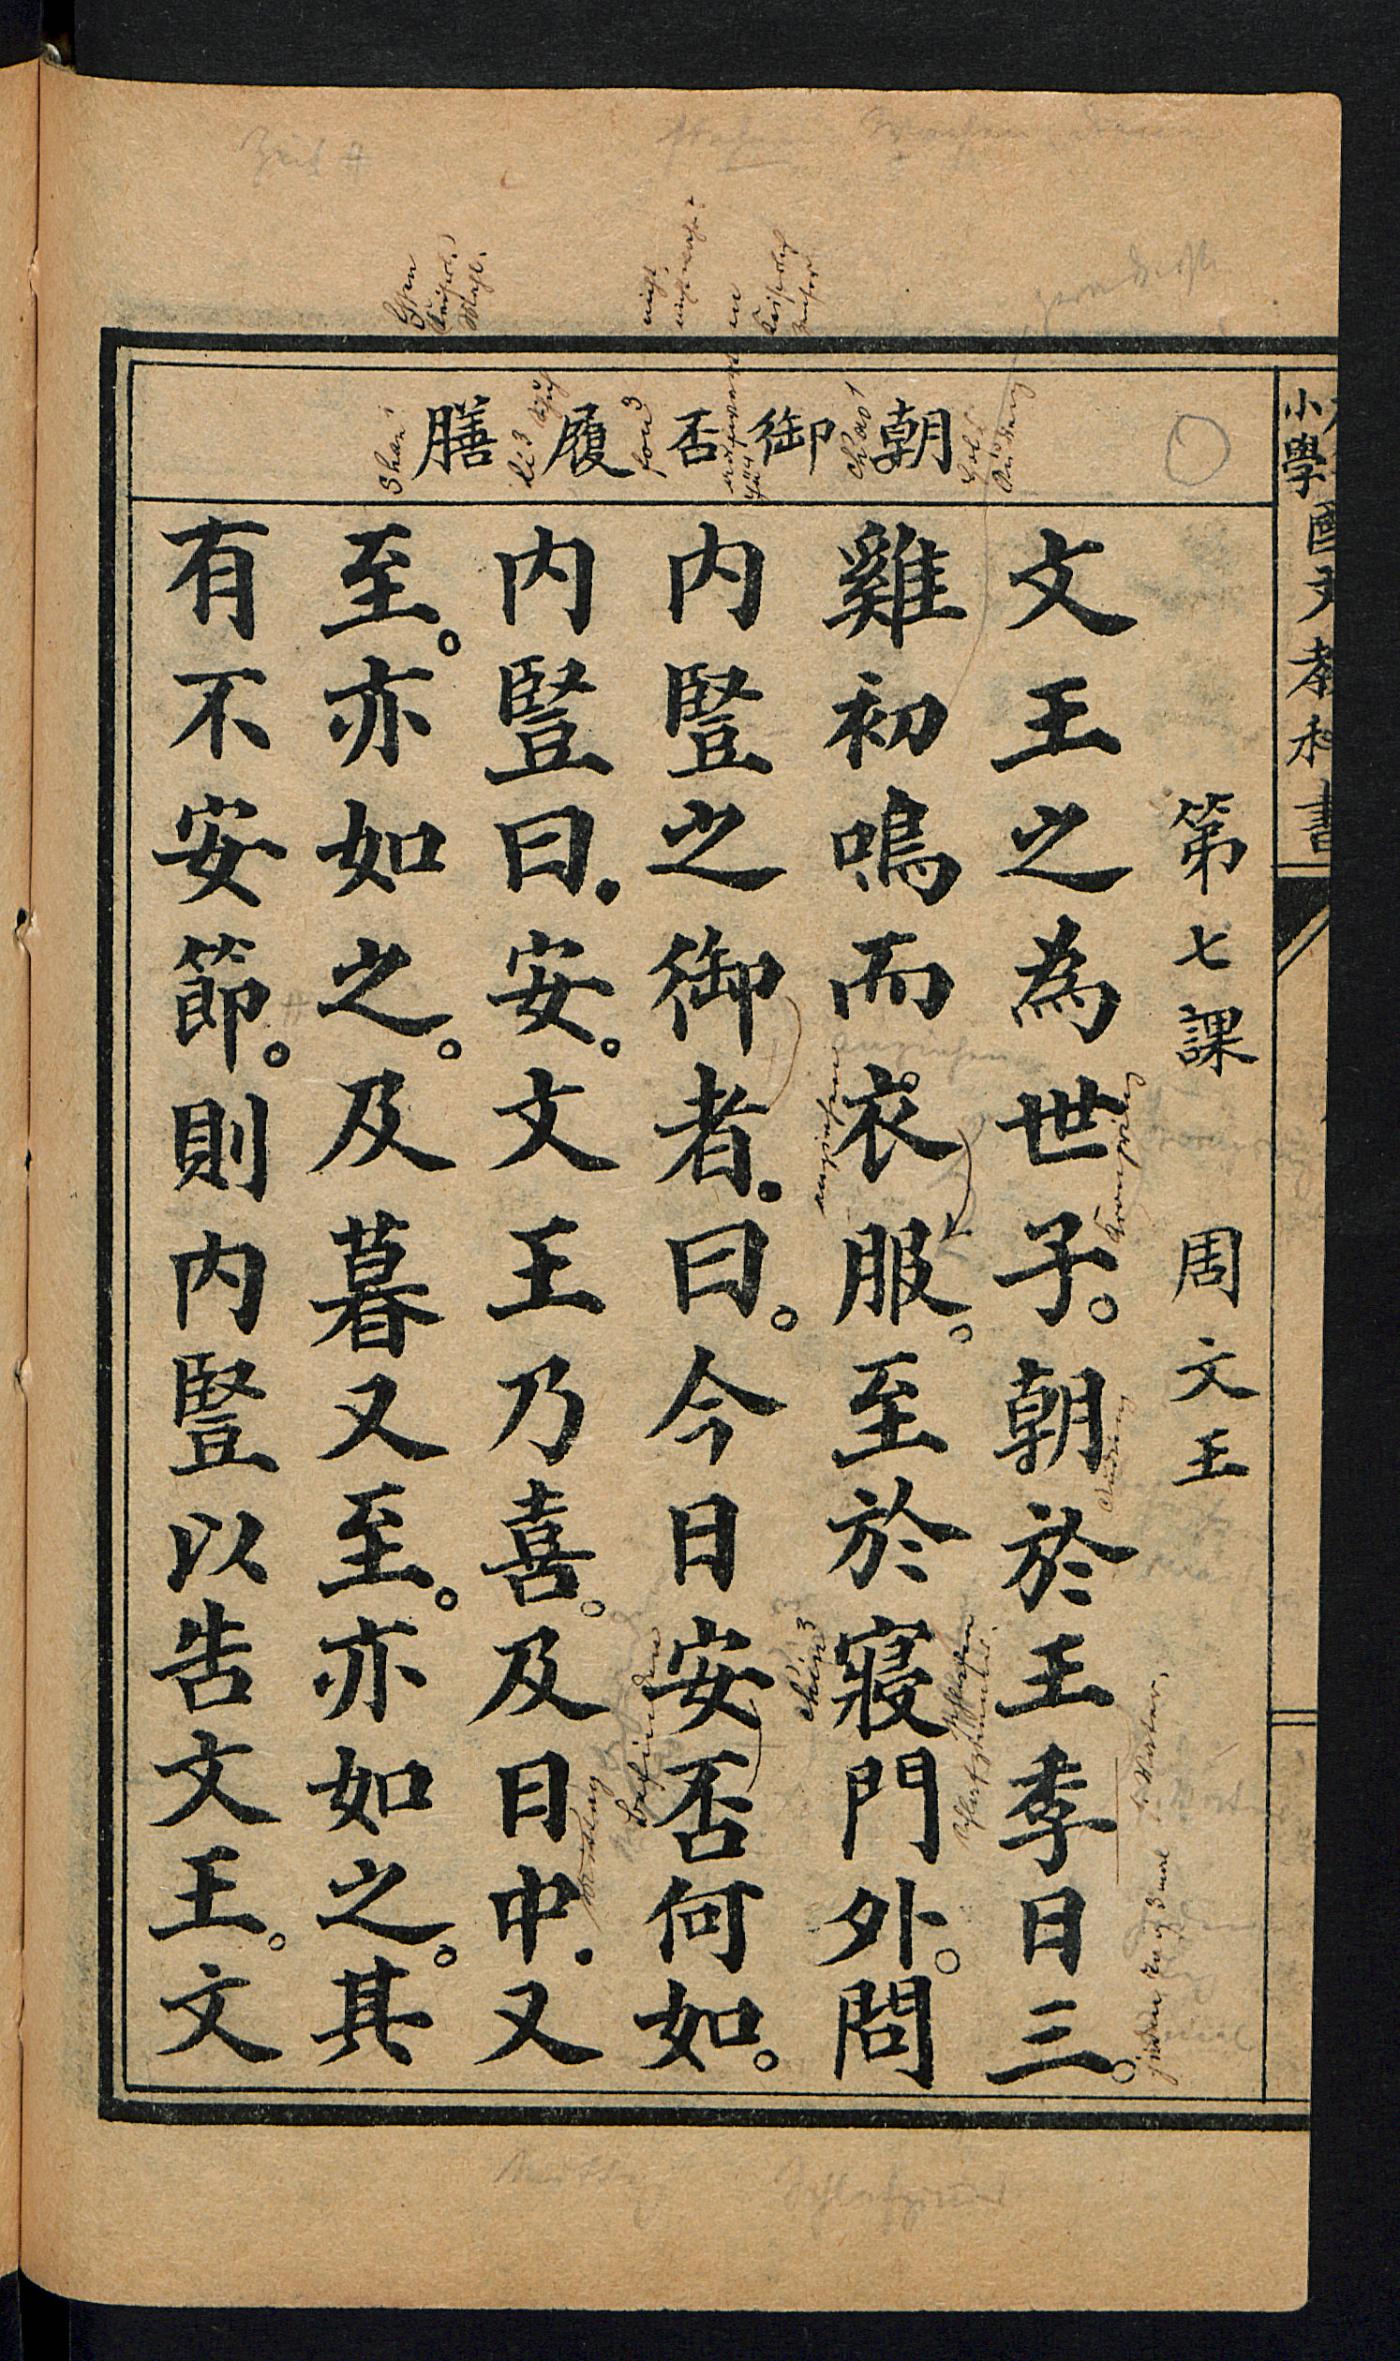 小學國文教科書
第七課 周文王
朝御否履膳
文王之為世子。朝於王季日三。
雞初鳴而衣服。至於寢門外。問
内豎之御者.曰。今日安否何如。
内豎曰.安。文王乃喜。及日中.又
至。亦如之。及暮又至。亦如之。其
有不安節。則内豎以告文王。文
ch'ao1
fou3
li3
shan4
ch'in3
anziehen
Kronprinz
befinden
Mittag